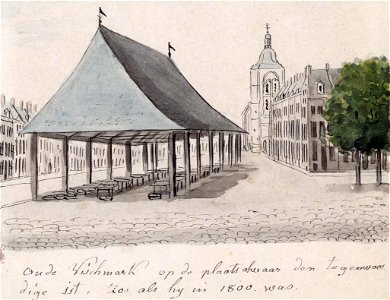 Oude Vischmark op de plaats alwaar den tegenwoor
dige ist; Zoo als hy in 1800. was.